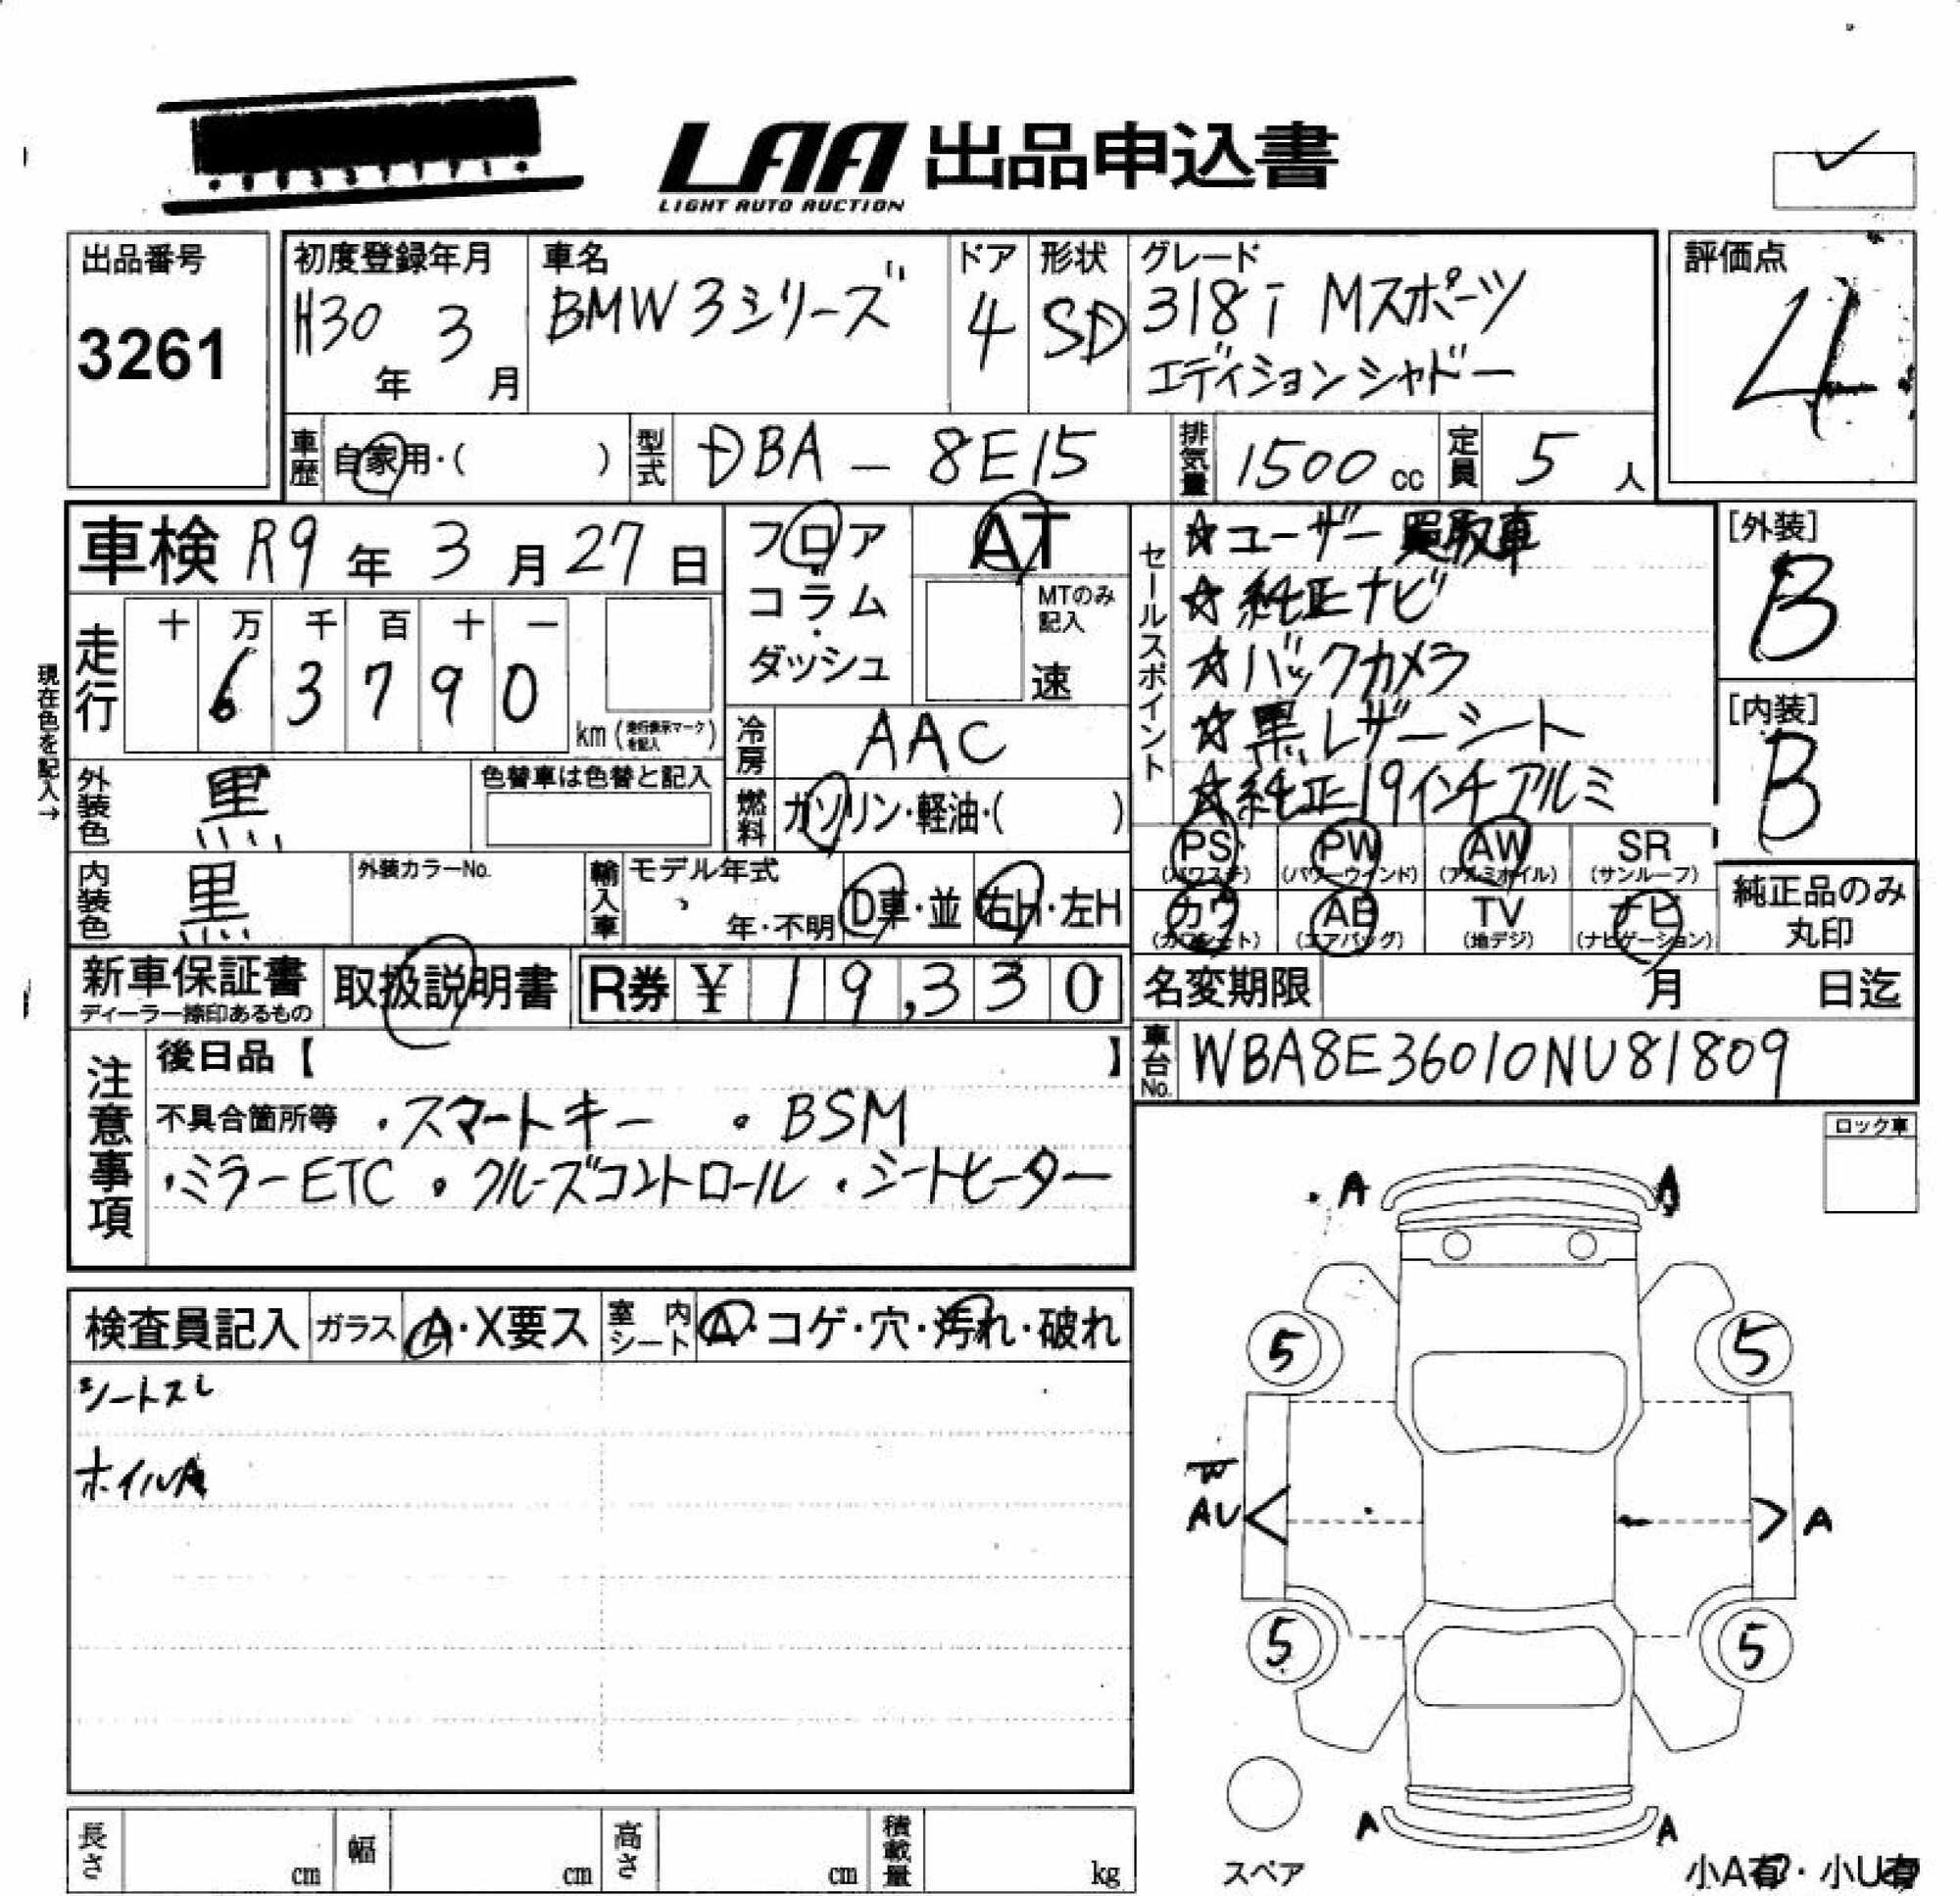 LAA 出品申込書
LIGHT AUTO AUCTION
出品番号
3261
初度登録年月
H30年 3月
車名
BMW 3シリーズ
ドア
4
形状
SD
グレード
318i Mスポーツ
エディションシャドー
評価点
4
車歴 自家用・( )
型式 DBA - 8E15
排気量 1500 cc
定員 5 人
車検 R9 年 3 月 27 日
フロア
コラム
・
ダッシュ
AT
MTのみ
記入
速
セールスポイント
☆ユーザー買取車
☆純正ナビ
☆バックカメラ
☆黒レザーシート
☆純正19インチアルミ
[外装]
B
[内装]
B
現在色を記入→
走行
十 万 千 百 十 一
6 3 7 9 0
km (走行表示マークを記入)
冷房 AAC
燃料 ガソリン・軽油・( )
外装色 黒
色替車は色替と記入
内装色 黒
外装カラーNo.
輸入車
モデル年式
年・不明
D車・並
右H・左H
PS (パワステ)
PW (パワーウインド)
AW (アルミホイル)
SR (サンルーフ)
カワ
AB (エアバッグ)
TV (地デジ)
ナビ (ナビゲーション)
純正品のみ
丸印
新車保証書
ディーラー捺印あるもの
取扱説明書
R券 ¥ 19,330
名変期限 月 日迄
車台No. WBA8E36010NU81809
注意事項
後日品【 】
不具合箇所等 ・スマートキー ・BSM
・ミラーETC ・クルーズコントロール ・シートヒーター
ロック車
検査員記入
ガラス A・X要ス
室内シート A・コゲ・穴・汚れ・破れ
シートスレ
ホイルA
A A
5 5
AU A
5 5
A A
スペア
小A有・小U有
長さ cm
幅 cm
高さ cm
積載量 kg